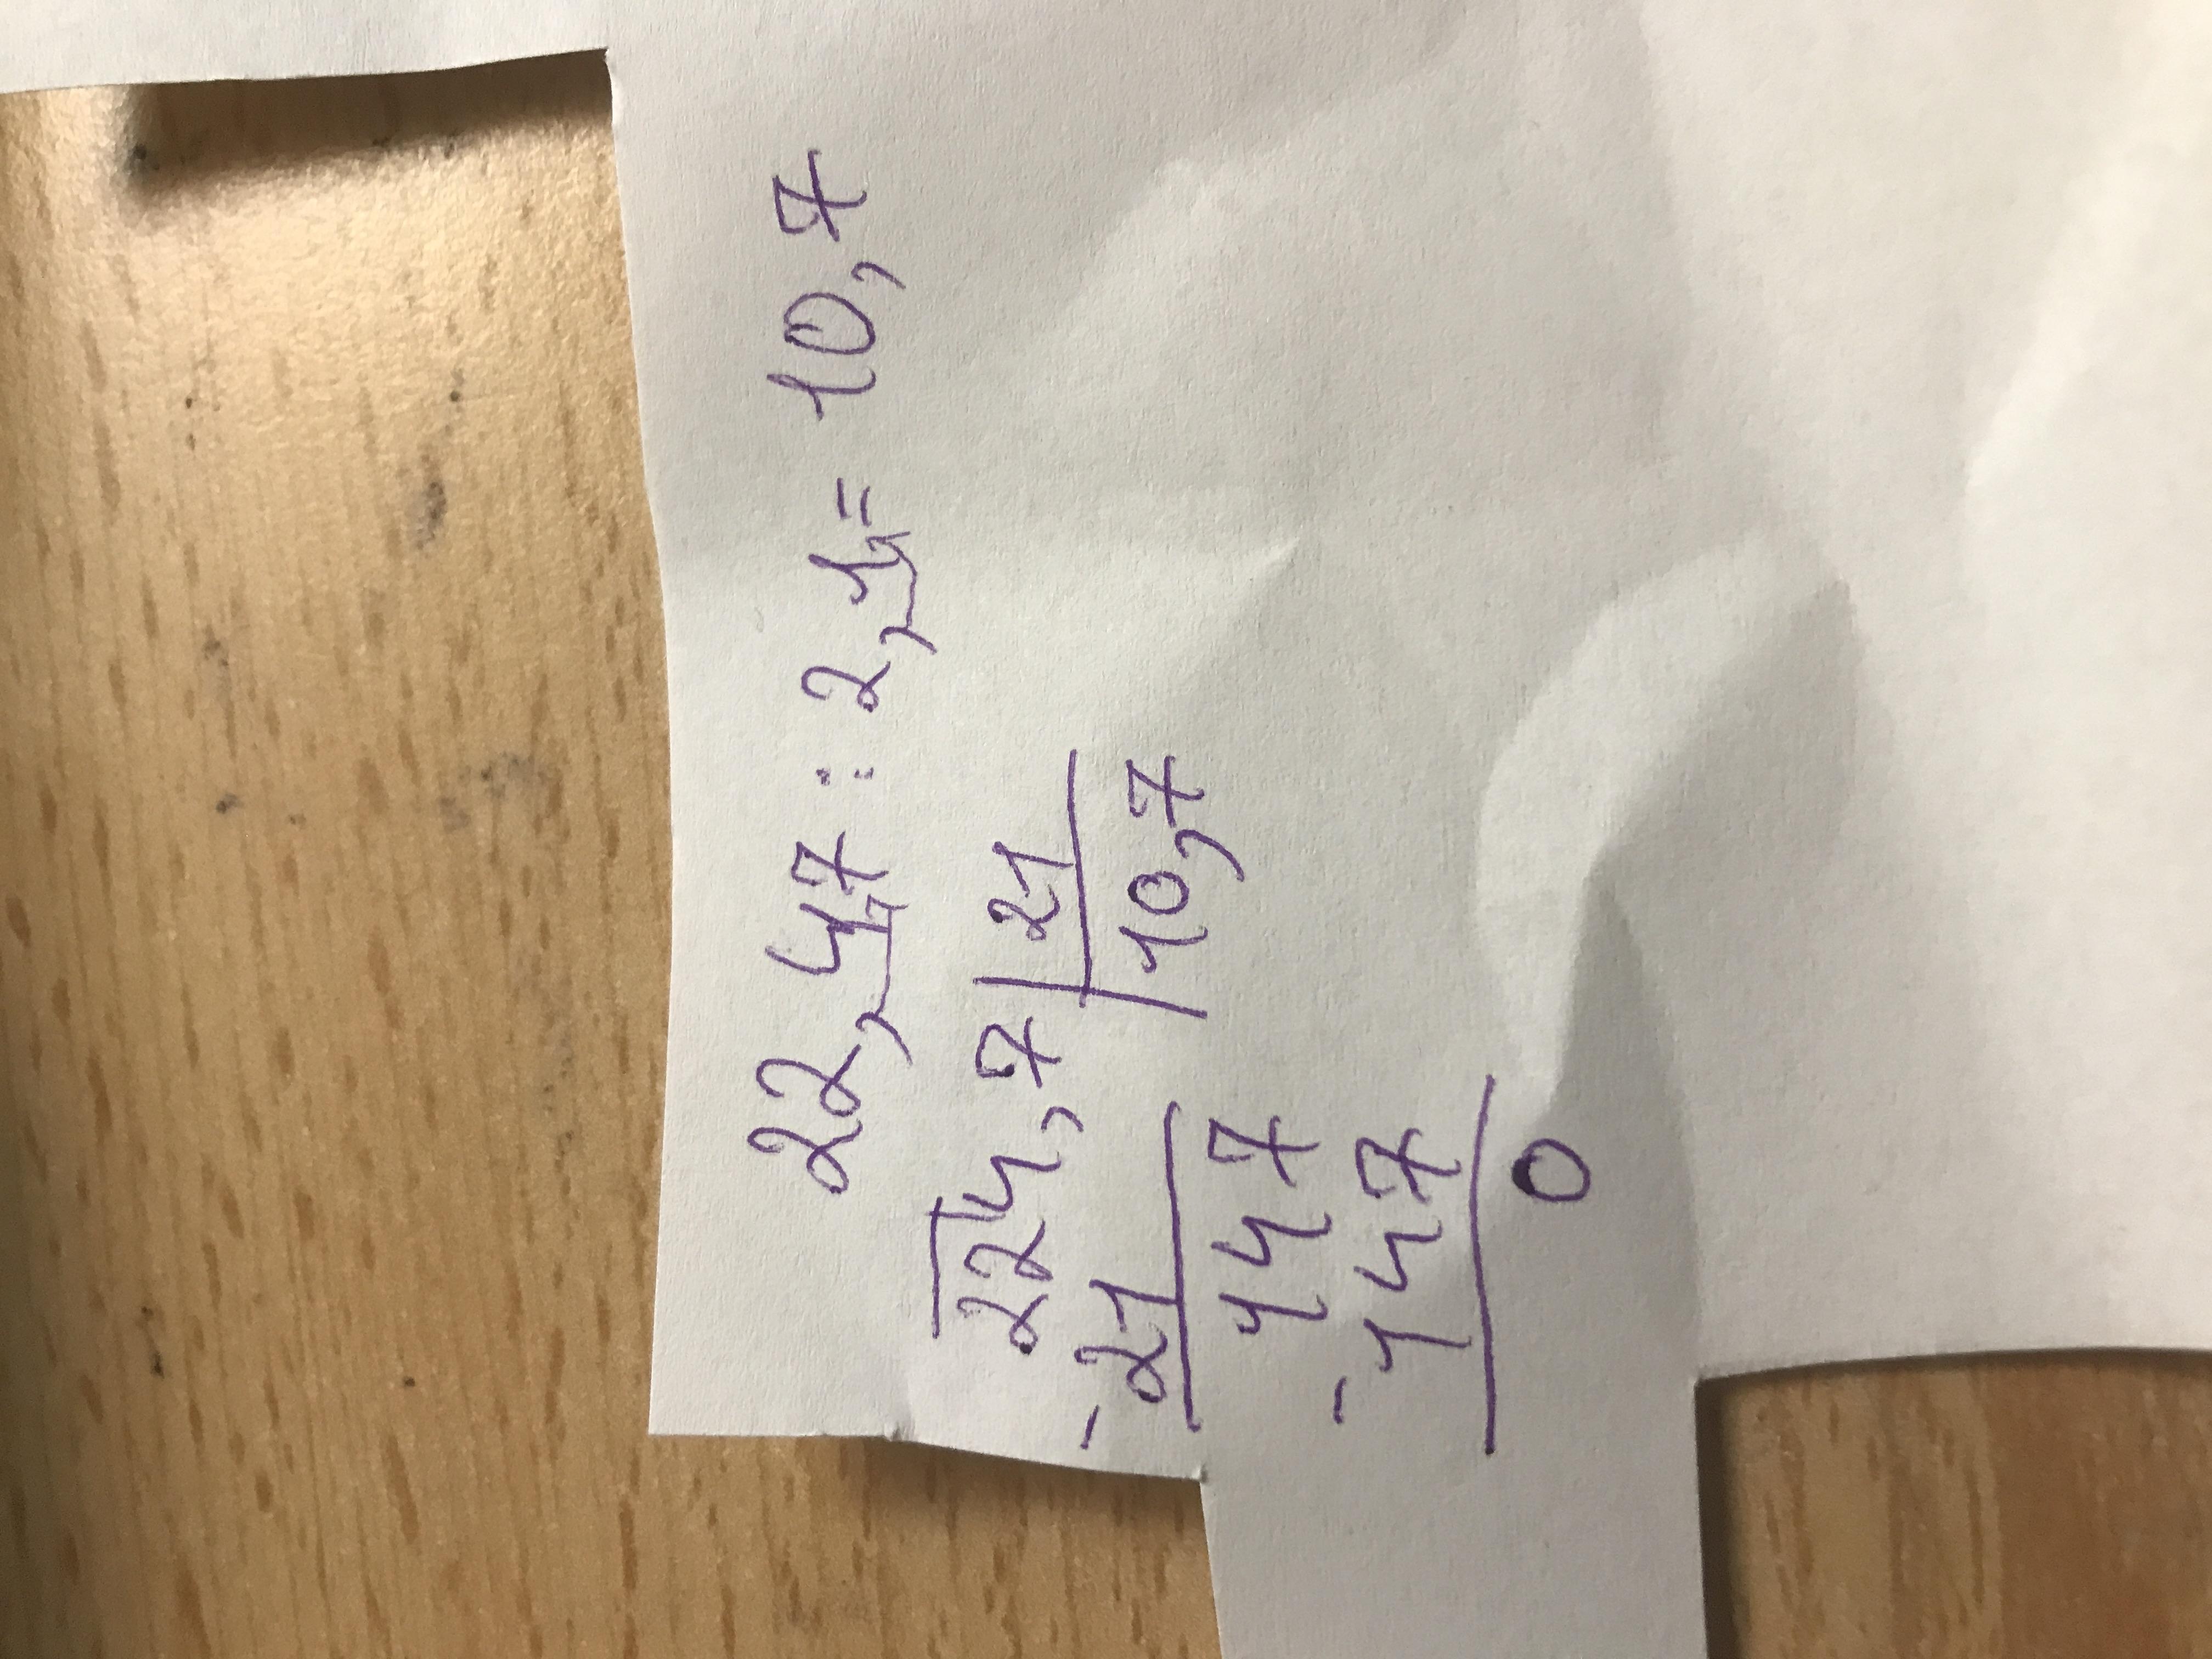 22,47 : 2,1 = 10,7
224,7 | 21
- 21 | 10,7
147
- 147
0